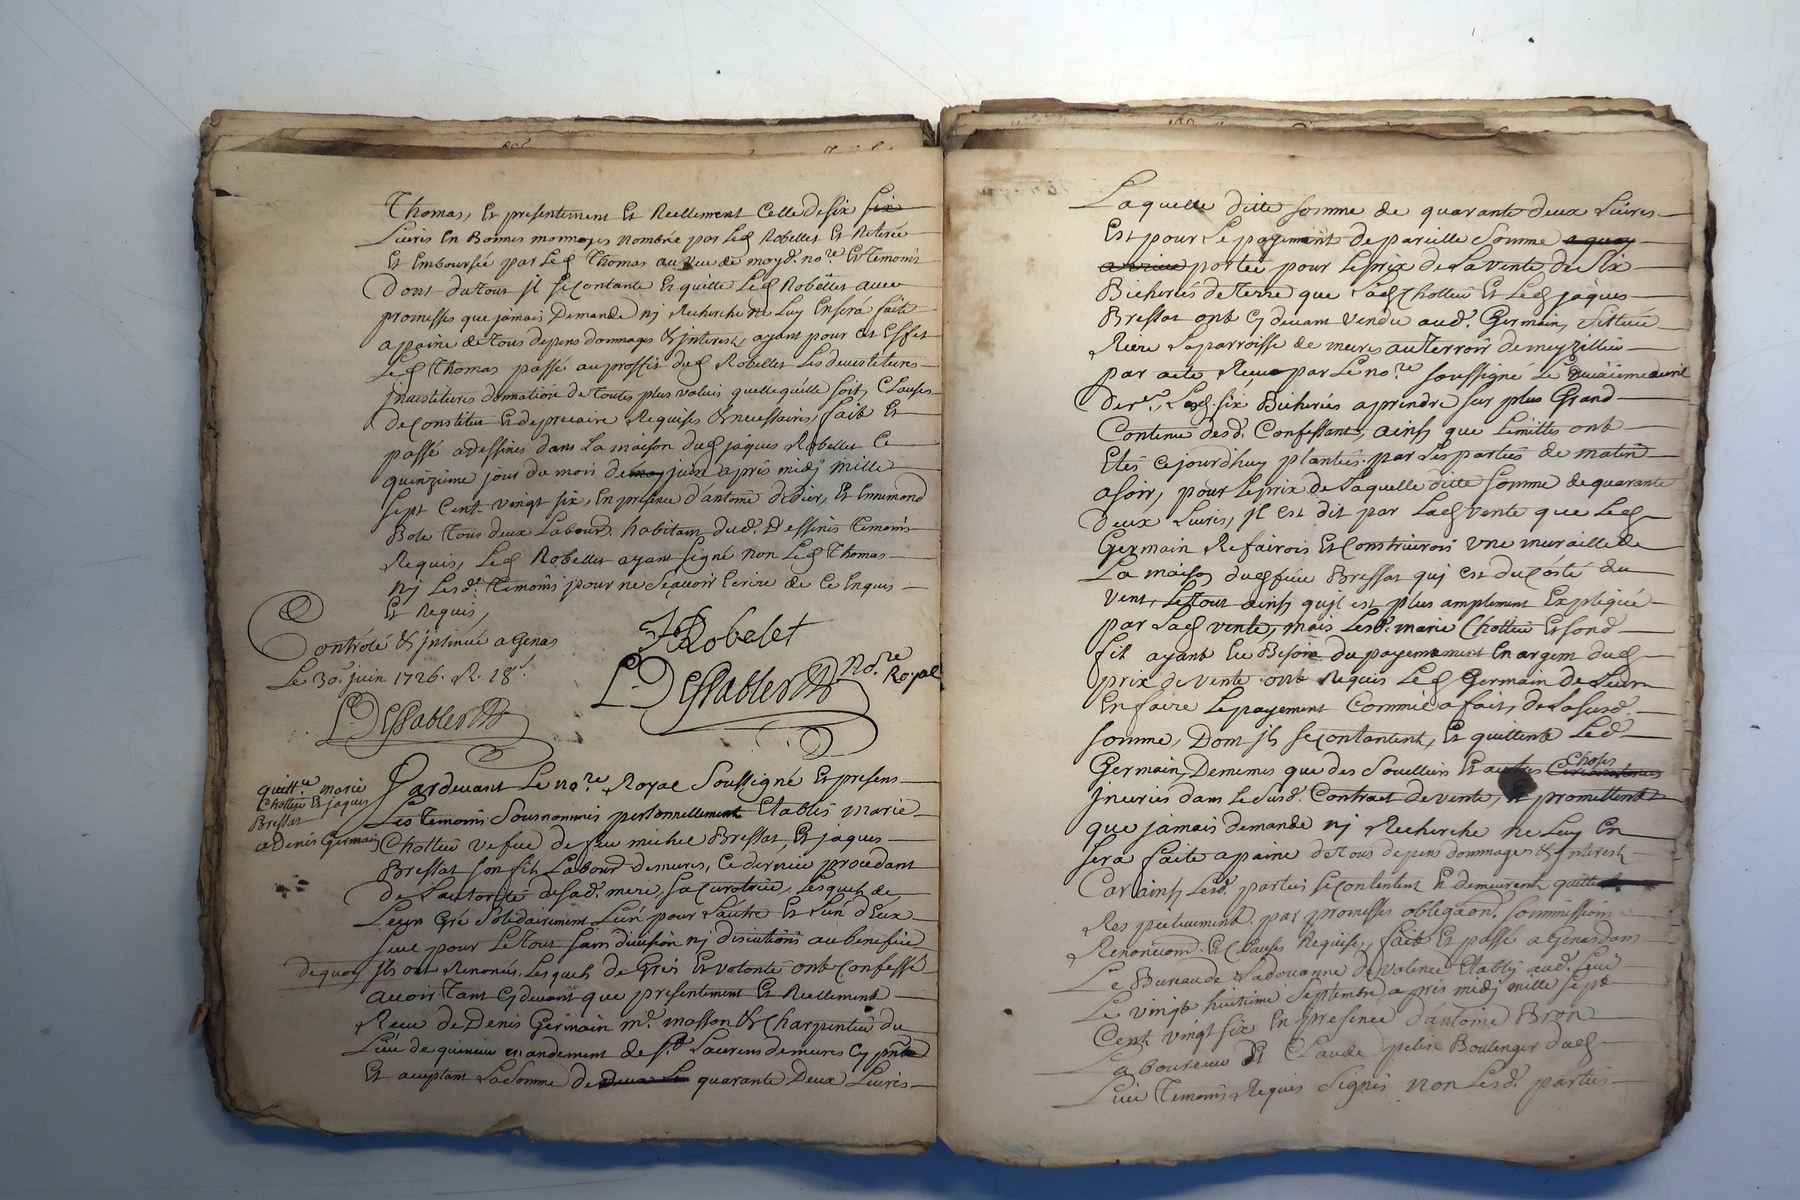 Thomas, Et presentement Et Reellement Celle de six six
Livres En Bonnes monnoyes nombrée par Led Robellet Et Retirée
Et Emboursée par Led Thomas au vue de moyd. nore Et Temoins
Dont du tout jl se contante Et quitte Led Robellet avec
promesses que jamais Demande nj Recherche ne Luy En sera faite
a paine de tous depens dommages & jnterest, ayant pour cet Effet
Led Thomas passé au proffit dud Robellet Les devestitures
jnvestitures donnation de Toutes plus values quelle qu'elle soit, Clauses
de Constitut Et de precaire Requises & necessaires, fait Et
passé a dessines dans La maison dud jaques Robellet Ce
quinzieme jour du mois de may juin apres midj mille
sept Cent vingt six, En presence d'antoine didier, Et Ennemond
Bole Tous deux Labours. habitans dud. Dessines Temoins
Requis, Led Robellet ayant signé non Led Thomas
nj Lesd. Temoins pour ne sçavoir Ecrire de Ce Enquis
Et Requis
JRobelet
Controlé & jnsinué a Genas
Le 30e. juin 1726. R. 18s.
L. DEssablettes Nore. Royal
L. DEssablettes
quittce marie
Chotteu Et jaques
Bressat
a Denis Germain
Pardevant Le nore. Royal Soussigné Et presens
Les Temoins Sousnommés personnellement Etablis marie
Chotteu vefve de feu michel Bressat, Et jaques
Bressat son fil Labourd demeures, Ce dernier procedant
de L'autorité de sad. mere, sa curatrice, Lesquels de
Leur Gré Solidairement L'un pour L'autre Et L'un d'Eux
seul pour Le Tout sans division nj discutions au benefice
de quoy jls ont Renoncés, Lesquels de Grés Et volonté ont Confessé
avoir Tant Cy devant que presentement Et Reellement
Receu de Denis Germain me. masson & Charpentier du
Lieu de mandement de st. Laurens de mures Cy pnt
Et acceptant La somme de deux Le quarante Deux Livres
Laquelle ditte somme de quarante deux Livres
Est pour Le payement de pareille Somme a quoy
portée pour Le prix de La vente de Six
Bicherées de Terre que Lad Chotteu Et Led jaques
Bressat ont Cy devant vendu aud. Germain, scittuée
Riere La parroisse de mures au Terroir de meyzillieu
par acte Receu par Le nore. soussigné Le avril
Der., six Bicherées a prendre sur plus Grand
Contenu desd. Confessants, ainsi que Limittes ont
Etés Cejourd'huy plantées par Les parties de matin
a soir, pour Le prix de Laquelle ditte somme de quarante
deux Livres, jl est dit par Lad vente que Led
Germain Refairois Et Construirois Une muraille de
La maison dud feu Bressat quj est du Côté du
vent, Le tout ainsi qu'jl est plus amplement Expliqué
par Lad vente, mais Lesd. marie Chotteu Et sond.
fil ayant Eu Besoin du payement En argent dud
prix de vente ont Requis Led Germain de Leur
En faire Le payement Comme a fait, de La susd.
somme, Dont jls se contantent, Et quittent Led.
Germain, De memes que des Et autres Choses
jnceriés dans Le susd. Contract de vente, Et promettent
que jamais demande nj Recherche ne Luy En
sera faite a paine de tous depens dommages & jnterest
Car ainsi Lesd. parties se contentent Et demeurent quittes
Respectivement par promesses obligaons. soummissions
Renonciaons. Et Clauses Requises, fait Et passé a Genas dans
Le Bureau de La douanne de valence Etablj aud. Lieu
Le vingt huitieme Septembre apres midj mille sept
Cent vingt six En presence d'antoine Bron
Laboureur Et Claude Boulenger dud
Lieu Temoins Requis Signés non Lesd. parties